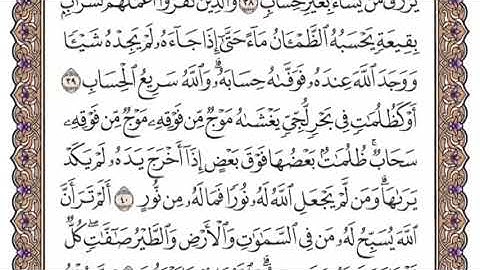 يَرْزُقُ مَن يَشَآءُ بِغَيْرِ حِسَابٍ ٣٨ وَٱلَّذِينَ كَفَرُوٓا۟ أَعْمَٰلُهُمْ كَسَرَابٍۭ
بِقِيعَةٍ يَحْسَبُهُ ٱلظَّمْـَٔانُ مَآءً حَتَّىٰٓ إِذَا جَآءَهُۥ لَمْ يَجِدْهُ شَيْـًٔا
وَوَجَدَ ٱللَّهَ عِندَهُۥ فَوَفَّىٰهُ حِسَابَهُۥ ۗ وَٱللَّهُ سَرِيعُ ٱلْحِسَابِ ٣٩
أَوْ كَظُلُمَٰتٍ فِى بَحْرٍ لُّجِّىٍّ يَغْشَىٰهُ مَوْجٌ مِّن فَوْقِهِۦ مَوْجٌ مِّن فَوْقِهِۦ
سَحَابٌ ۚ ظُلُمَٰتٌۢ بَعْضُهَا فَوْقَ بَعْضٍ إِذَآ أَخْرَجَ يَدَهُۥ لَمْ يَكَدْ
يَرَىٰهَا ۗ وَمَن لَّمْ يَجْعَلِ ٱللَّهُ لَهُۥ نُورًا فَمَا لَهُۥ مِن نُّورٍ ٤٠ أَلَمْ تَرَ أَنَّ
ٱللَّهَ يُسَبِّحُ لَهُۥ مَن فِى ٱلسَّمَٰوَٰتِ وَٱلْأَرْضِ وَٱلطَّيْرُ صَٰٓفَّٰتٍ ۖ كُلٌّ